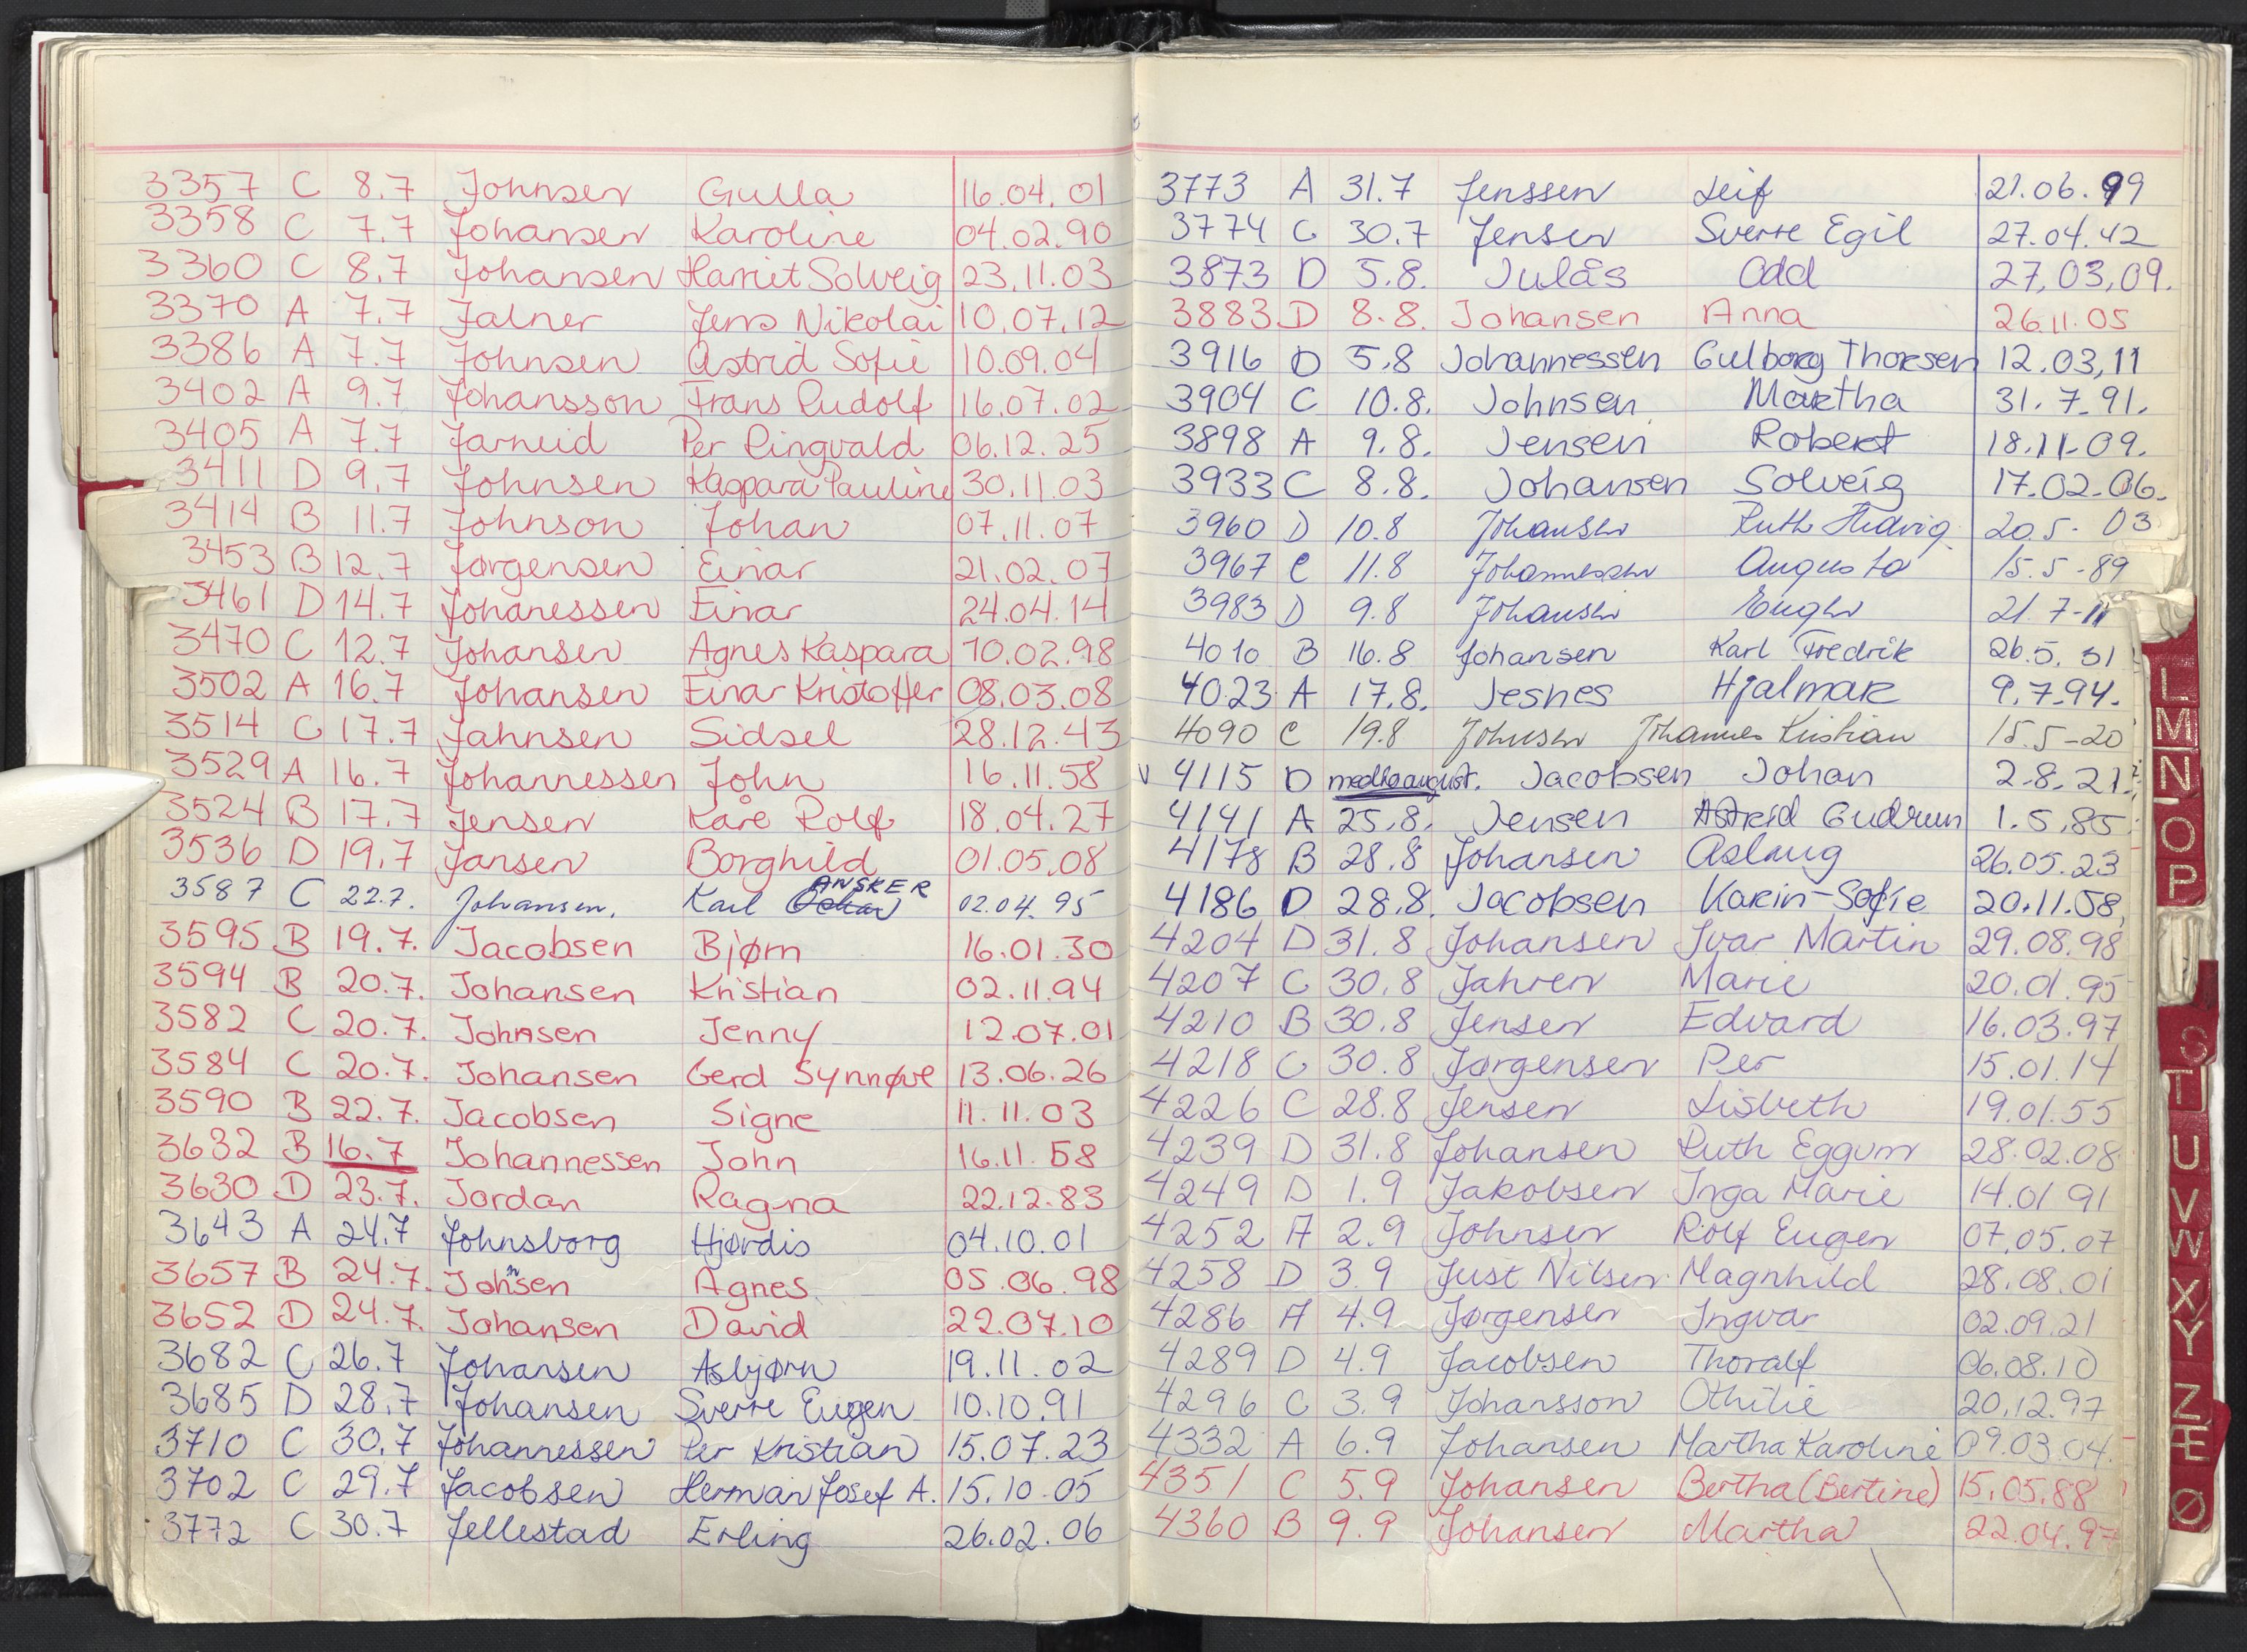 3357 C 8.7 Johnsen Gulla 16.04.01
3358 C 7.7 Johansen Karoline 04.02.90
3360 C 8.7 Johansen Harriet Solveig 23.11.03
3370 A 7.7 Jalner Jens Nikolai 10.07.12
3386 A 7.7 Johnsen Astrid Sofie 10.09.04
3402 A 9.7 Johansson Frans Rudolf 16.07.02
3405 A 7.7 Jarneid Per Ringvald 06.12.25
3411 D 9.7 Johnsen Kaspara Pauline 30.11.03
3414 B 11.7 Johnson Johan 07.11.07
3453 B 12.7 Jørgensen Einar 21.02.07
3461 D 14.7 Johanessen Einar 24.04.14
3470 C 12.7 Johansen Agnes Kaspara 10.02.98
3502 A 16.7 Johansen Einar Kristoffer 08.03.08
3514 C 17.7 Jahnsen Sidsel 28.12.43
3529 A 16.7 Johannessen John 16.11.58
3524 B 17.7 Jensen Kåre Rolf 18.04.27
3536 D 19.7 Jansen Borghild 01.05.08
3587 C 22.7. Johansen. Karl ANSKER 02.04.95
3595 B 19.7. Jacobsen Bjørn 16.01.30
3594 B 20.7. Johansen Kristian 02.11.94
3582 C 20.7. Johnsen Jenny 12.07.01
3584 C 20.7. Johansen Gerd Synnøve 13.06.26
3590 B 22.7. Jacobsen Signe 11.11.03
3632 B 16.7 Johannessen John 16.11.58
3630 D 23.7. Jordan Ragna 22.12.83
3643 A 24.7 Johnsborg Hjørdis 04.10.01
3657 B 24.7. Johnsen Agnes 05.06.98
3652 D 24.7. Johansen David 22.07.10
3682 C 26.7 Johansen Asbjørn 19.11.02
3685 D 28.7 Johansen Sverre Eugen 10.10.91
3710 C 30.7 Johannessen Per Kristian 15.07.23
3702 C 29.7 Jacobsen Herman Josef A. 15.10.05
3772 C 30.7 Jellestad Erling 26.02.06
3773 A 31.7 Jenssen Leif 21.06.99
3774 C 30.7 Jensen Sverre Egil 27.04.42
3873 D 5.8. Julås Odd 27,03,09.
3883 D 8.8. Johansen Anna 26.11.05
3916 D 5.8 Johannessen Gulborg Thorsen 12.03,11
3904 C 10.8. Johnsen Martha 31.7.91.
3898 A 9.8. Jensen Robert 18.11-09.
3933 C 8.8. Johansen Solveig 17.02-06.
3960 D 10.8 Johansen Ruth Hedvig 20.5-03
3967 C 11.8 Johannessen Augusta 15.5-89
3983 D 9.8 Johansen 21.7-11
4010 B 16.8 Johansen Karl Fredrik 26.5.31
4023 A 17.8. Jesnes Hjalmar 9.7.94.
4090 C 19.8 Johnsen Johannes Kristian 15.5-20
v 4115 D medio august. Jacobsen Johan 2.8.21.
4141 A 25.8. Jensen Astrid Gudrun 1.5.85
4178 B 28.8 Johansen Aslaug 26.05.23
4186 D 28.8. Jacobsen Karin-Sofie 20.11.58
4204 D 31.8 Johansen Ivar Martin 29.08.98
4207 C 30.8 Jahren Marie 20.01.95
4210 B 30.8 Jensen Edvard 16.03.97
4218 C 30.8 Jørgensen Per 15.01.14
4226 C 28.8 Jensen Lisbeth 19.01.55
4239 D 31.8 Johansen Ruth Eggum 28.02.08
4249 D 1.9 Jakobsen Inga Marie 14.01 91
4252 A 2.9 Johnsen Rolf Eugen 07.05.07
4258 D 3.9 Just Nilsen Magnhild 28.08.01
4286 A 4.9 Jørgensen Ingvar 02.09.21
4289 D 4.9 Jacobsen Thoralf 06.08.10
4296 C 3.9 Johansson Othilie 20.12.97
4332 A 6.9 Johansen Martha Karoline 09.03.04.
4351 C 5.9 Johansen Bertha (Bertine) 15.05.88
4360 B 9.9 Johansen Martha 22.04.97
L
M
N
O
P
S
T
U
V
W
X
Y
Z
Æ
Ø